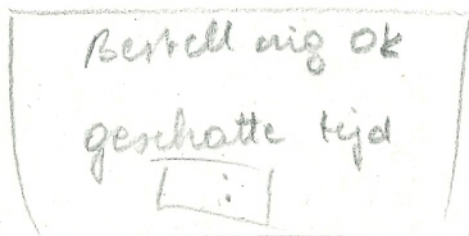 Bestelling ok
geschatte tijd
: